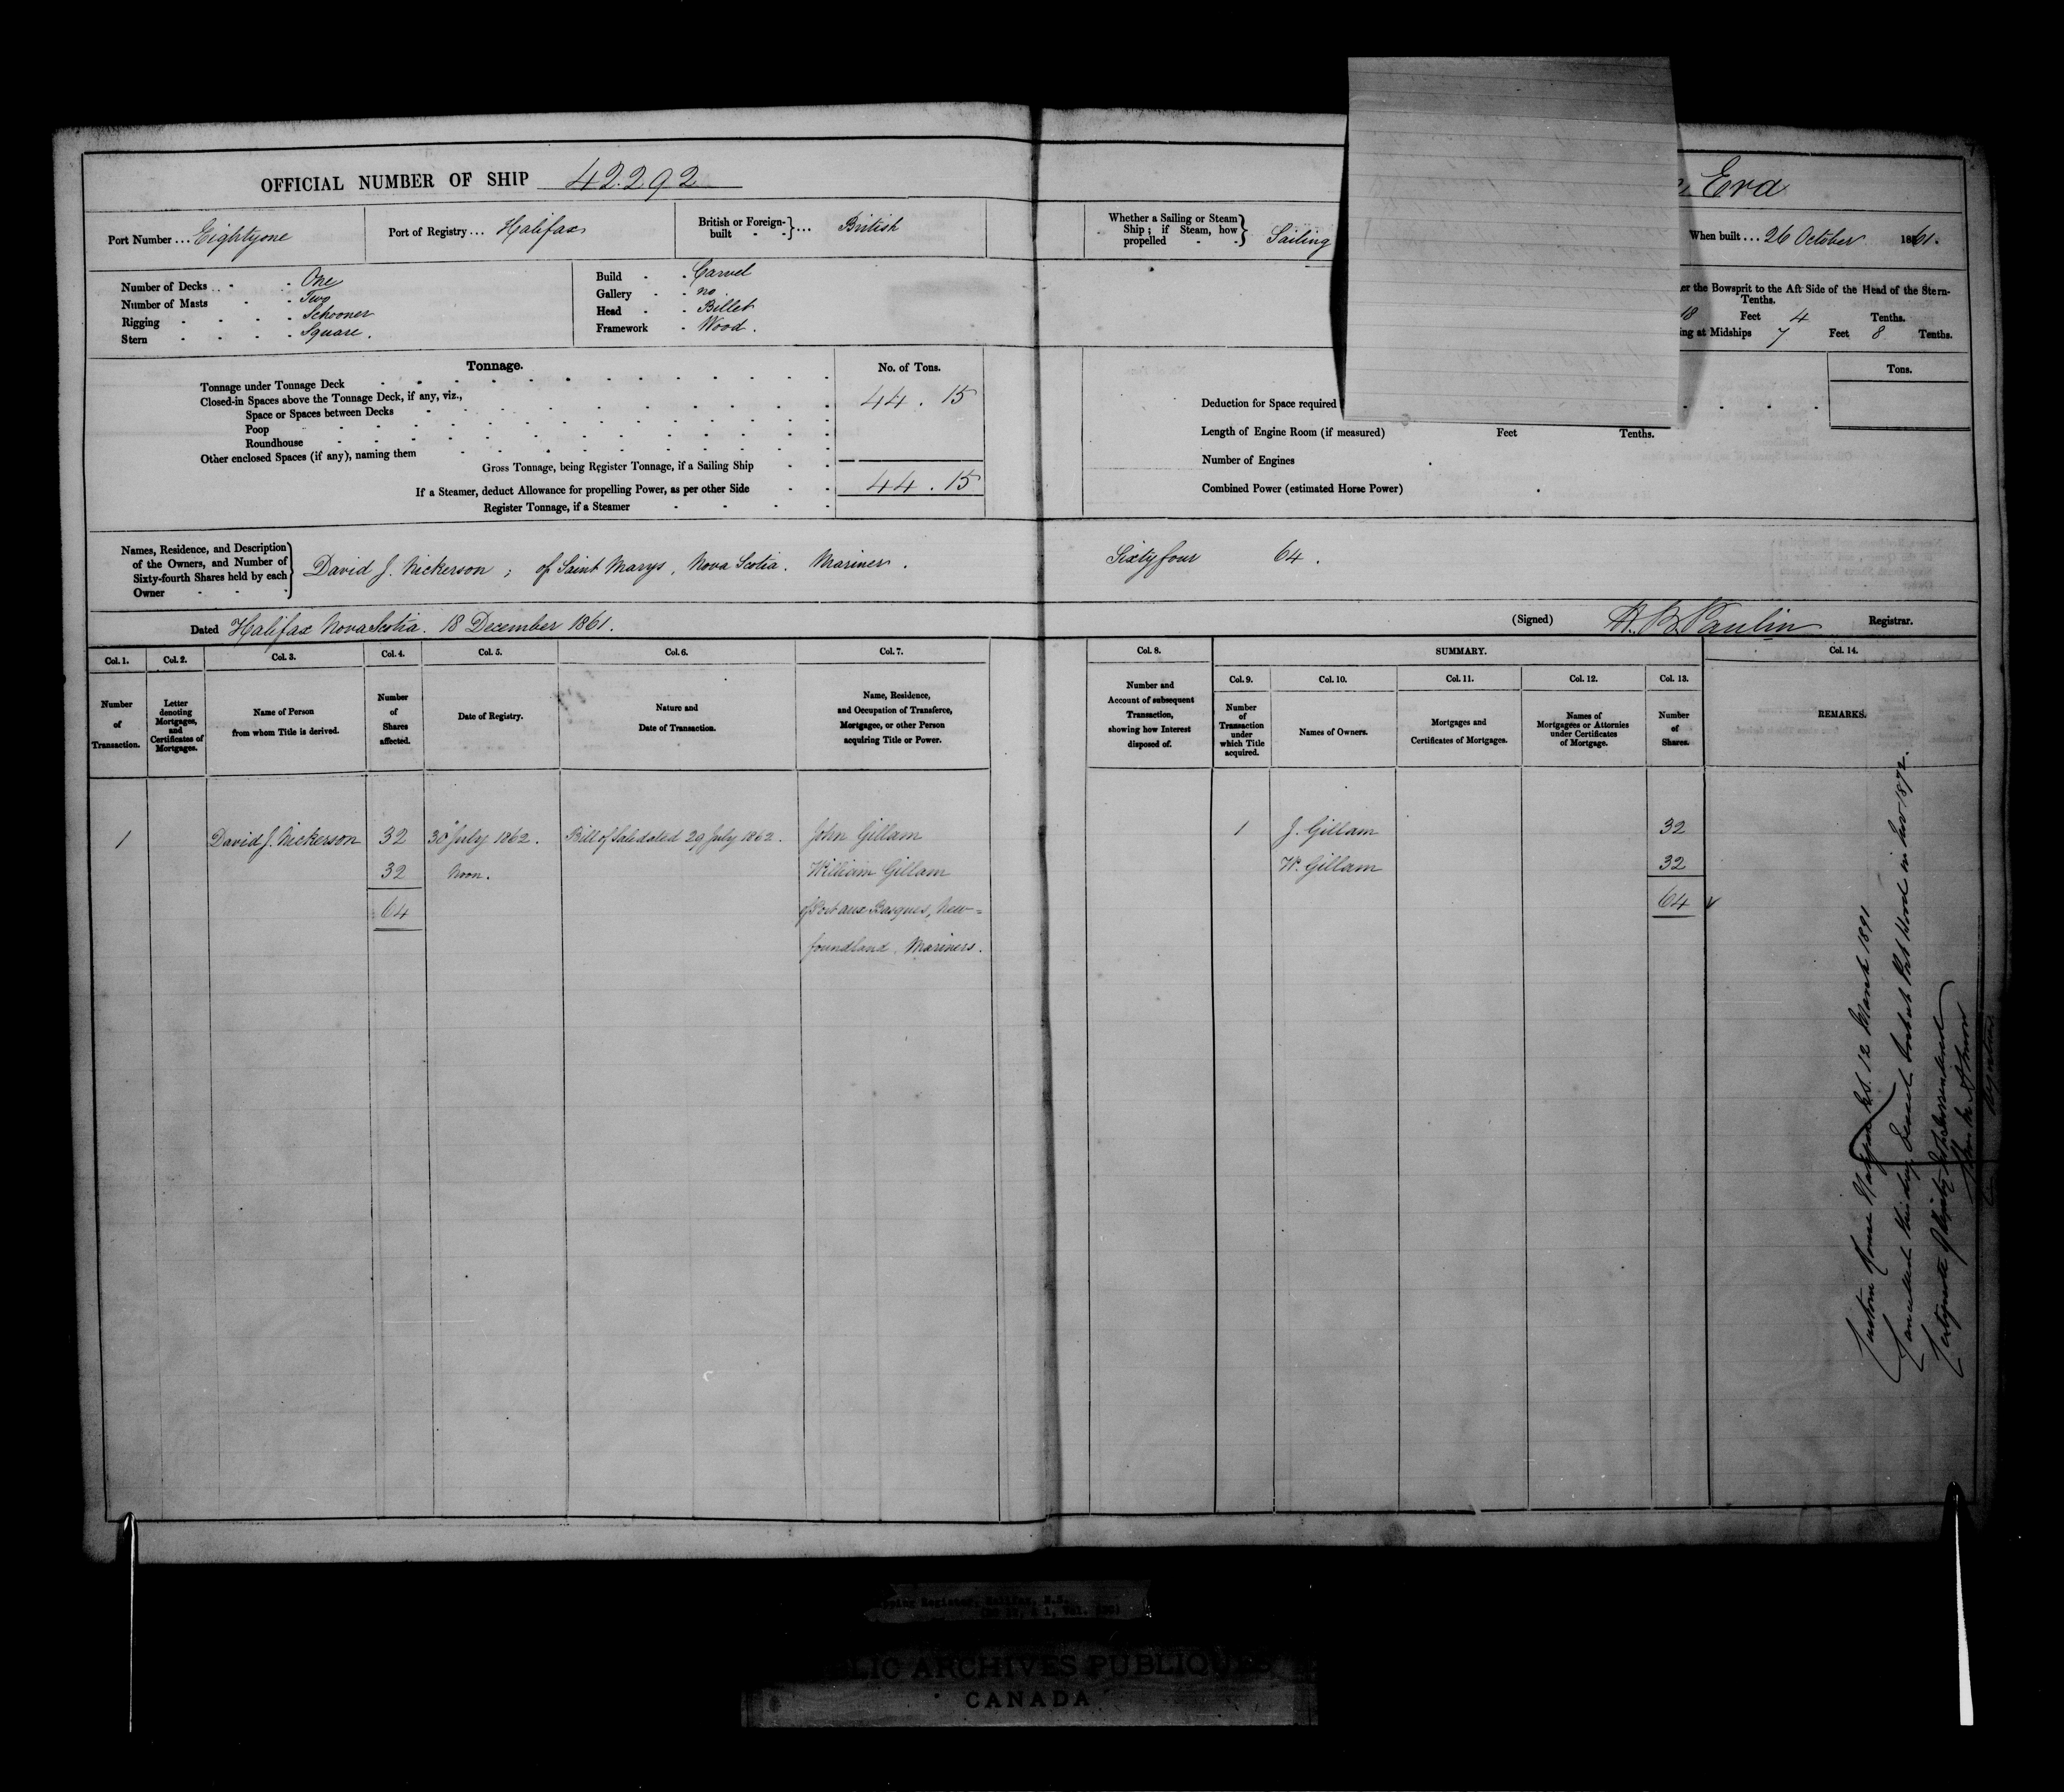 OFFICIAL NUMBER OF SHIP 42.292
Eva
Port Number ... Eightyone
Port of Registry ... Halifax
British or Foreign-built ... British
Whether a Sailing or Steam Ship; if Steam, how propelled Sailing
When built ... 26 October 1861.
Number of Decks One
Number of Masts Two
Rigging Schooner
Stern Square.
Build Carvel
Gallery no
Head Billet
Framework Wood.
er the Bowsprit to the Aft Side of the Head of the Stern-
Tenths.
18 Feet 4 Tenths.
ing at Midships 7 Feet 8 Tenths.
Tonnage.
No. of Tons.
Tonnage under Tonnage Deck 44.15
Closed-in Spaces above the Tonnage Deck, if any, viz.,
Space or Spaces between Decks
Poop
Roundhouse
Other enclosed Spaces (if any), naming them
Gross Tonnage, being Register Tonnage, if a Sailing Ship
If a Steamer, deduct Allowance for propelling Power, as per other Side 44.15
Register Tonnage, if a Steamer
Tons.
Deduction for Space required
Length of Engine Room (if measured) Feet Tenths.
Number of Engines
Combined Power (estimated Horse Power)
Names, Residence, and Description
of the Owners, and Number of
Sixty-fourth Shares held by each
Owner
David J. Nickerson; of Saint Marys, Nova Scotia. Mariner. Sixtyfour 64.
Dated Halifax Nova Scotia. 18 December 1861.
(Signed) Paulin Registrar.
Col. 1.
Number
of
Transaction.
Col. 2.
Letter
denoting
Mortgages,
and
Certificates of
Mortgages.
Col. 3.
Name of Person
from whom Title is derived.
Col. 4.
Number
of
Shares
affected.
Col. 5.
Date of Registry.
Col. 6.
Nature and
Date of Transaction.
Col. 7.
Name, Residence,
and Occupation of Transferee,
Mortgagee, or other Person
acquiring Title or Power.
Col. 8.
Number and
Account of subsequent
Transaction,
showing how Interest
disposed of.
SUMMARY.
Col. 9.
Number
of
Transaction
under
which Title
acquired.
Col. 10.
Names of Owners.
Col. 11.
Mortgages and
Certificates of Mortgages.
Col. 12.
Names of
Mortgagees or Attornies
under Certificates
of Mortgage.
Col. 13.
Number
of
Shares.
Col. 14.
REMARKS.
1 David J. Nickerson 32 30 July 1862. Bill of Sale dated 29 July 1862. John Gillam 1 J. Gillam 32
32 Noon. William Gillam W. Gillam 32
64 of Port aux Basques, New= 64
foundland. Mariners.
Custom House Halifax N.S. 12 March 1891
Cancelled this day, 1872.
Certificate
Registrar
pping Register, Halifax, N.S.
BLIC ARCHIVES PUBLIQUES
CANADA